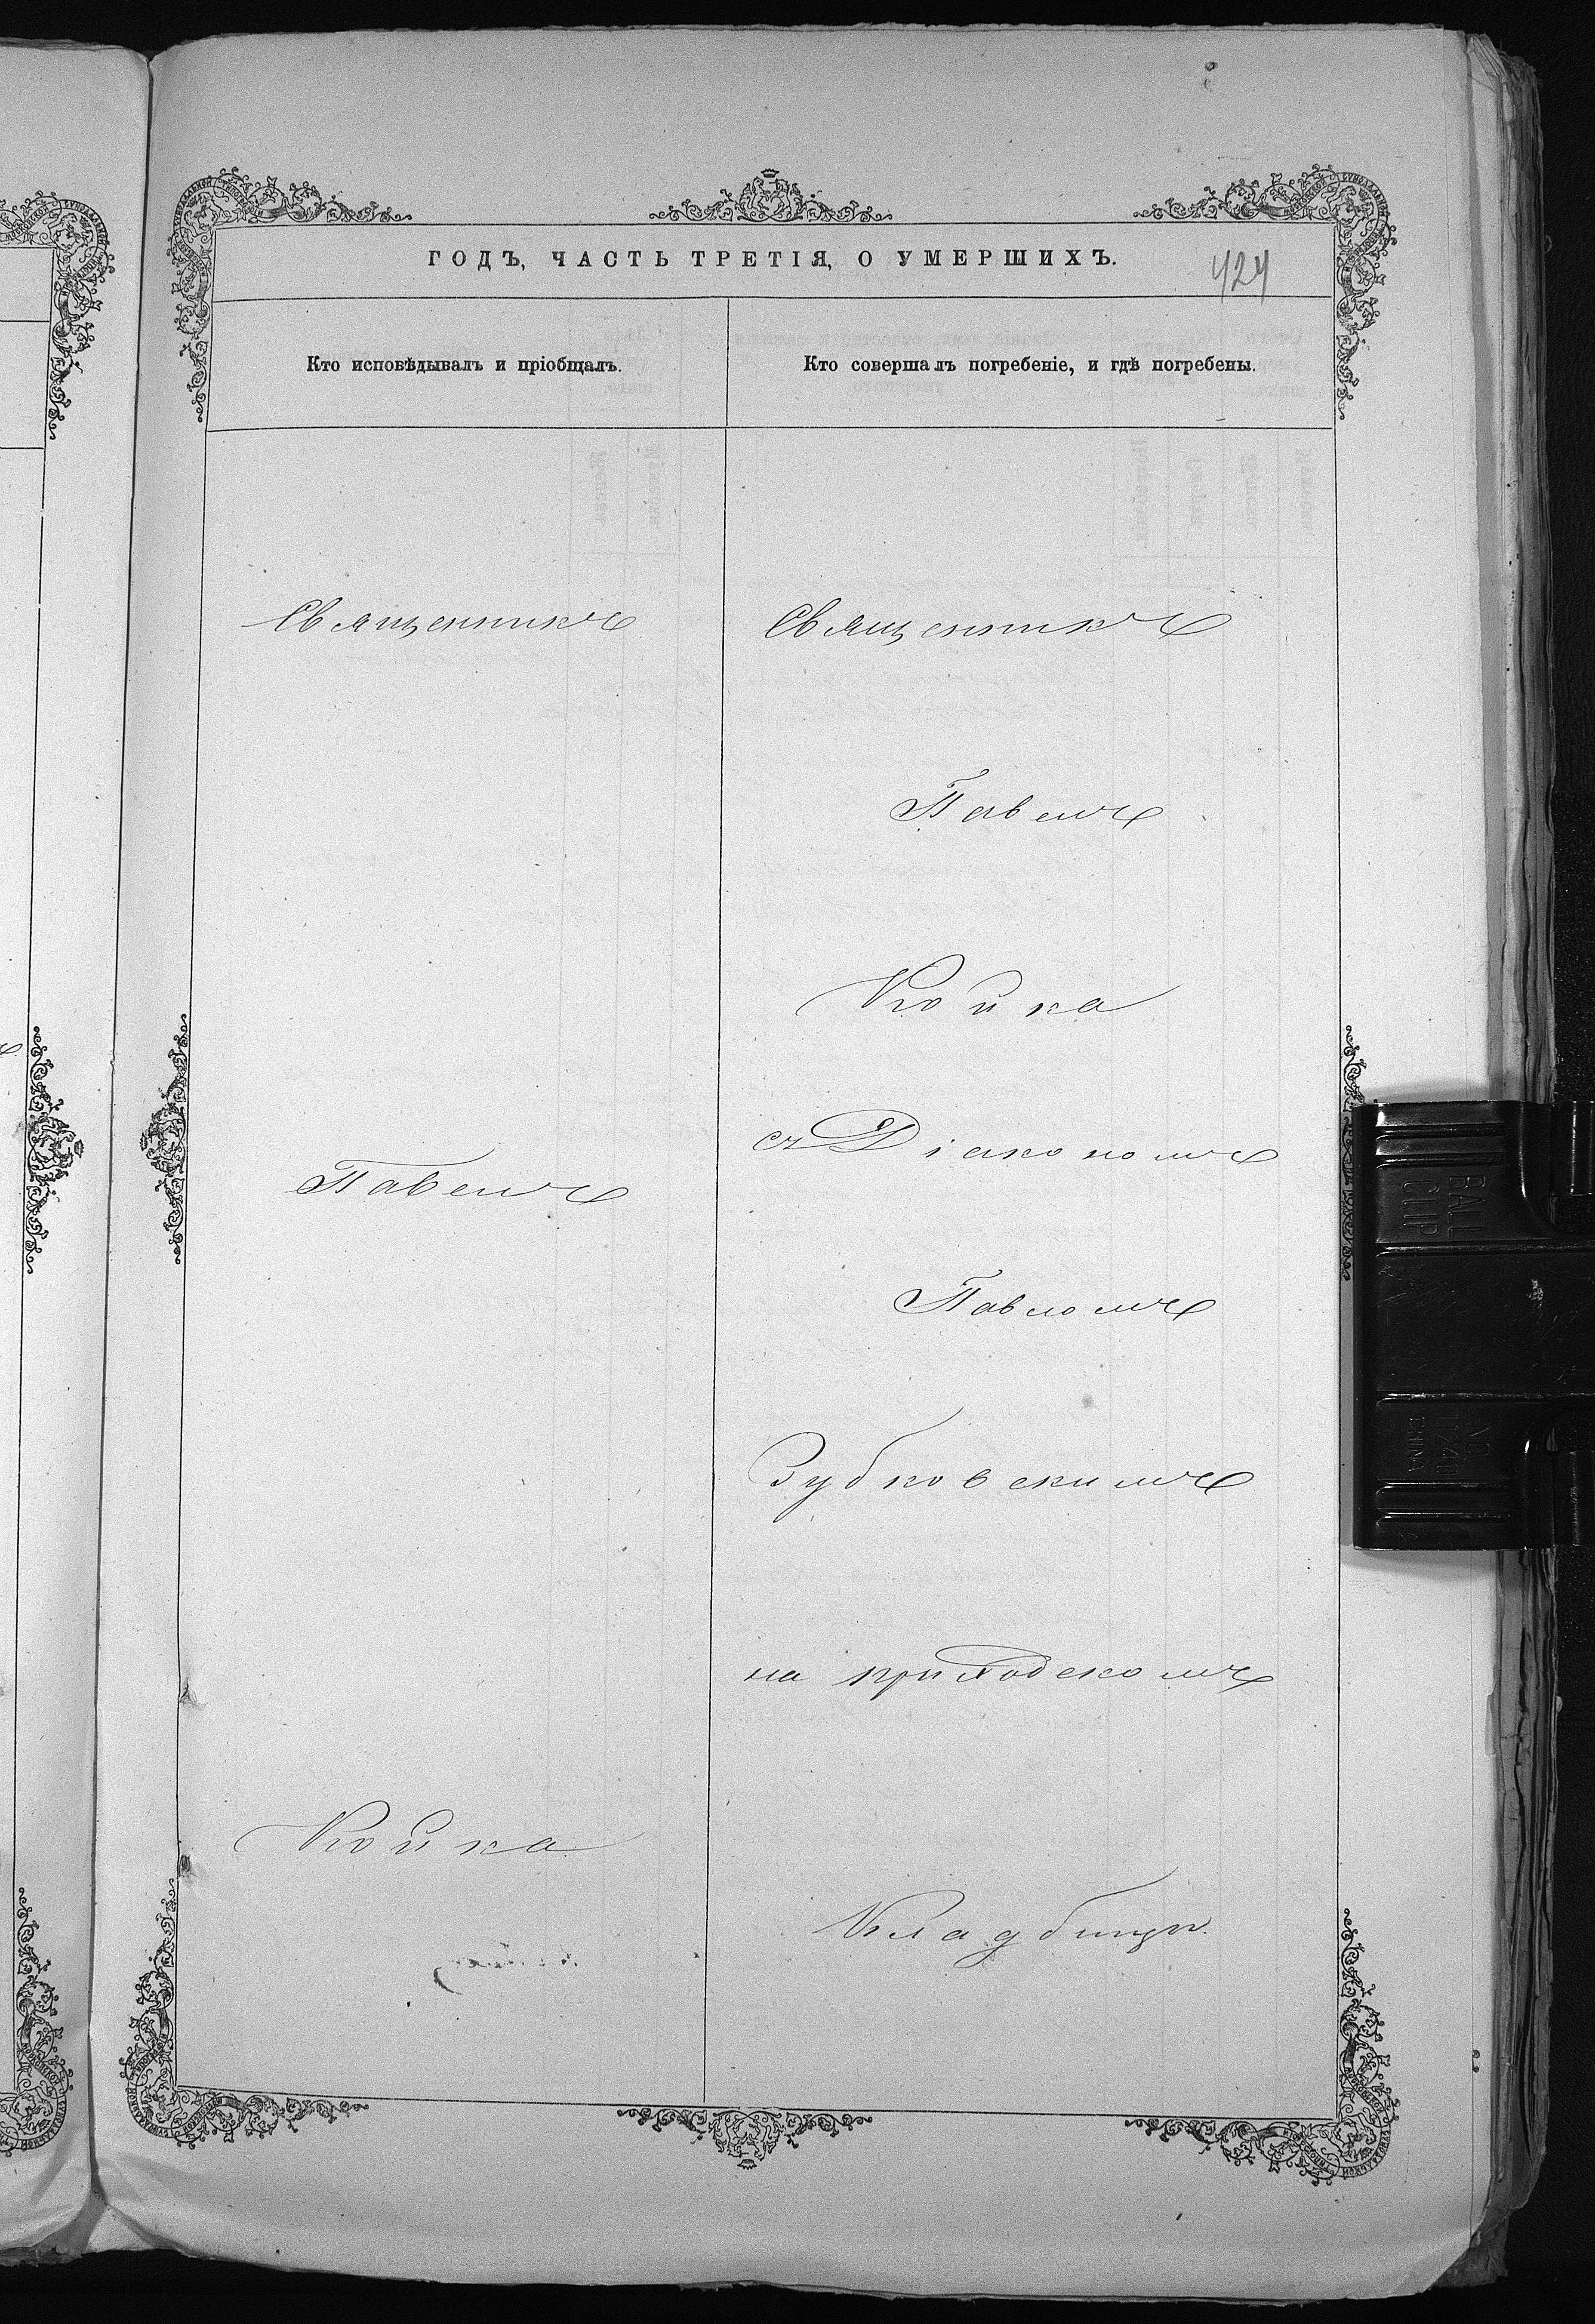 ГОДЪ, ЧАСТЬ ТРЕТІЯ, О УМЕРШИХЪ.
424
Кто исповѣдывалъ и пріобщалъ.
Кто совершалъ погребеніе, и гдѣ погребены.
Священникъ
Павелъ
Койка
Священникъ
Павелъ
Койка
съ Діакономъ
Павломъ
Зубковскимъ
на приходскомъ
Кладбищѣ.
BALL
CLIP
NO
CHINA